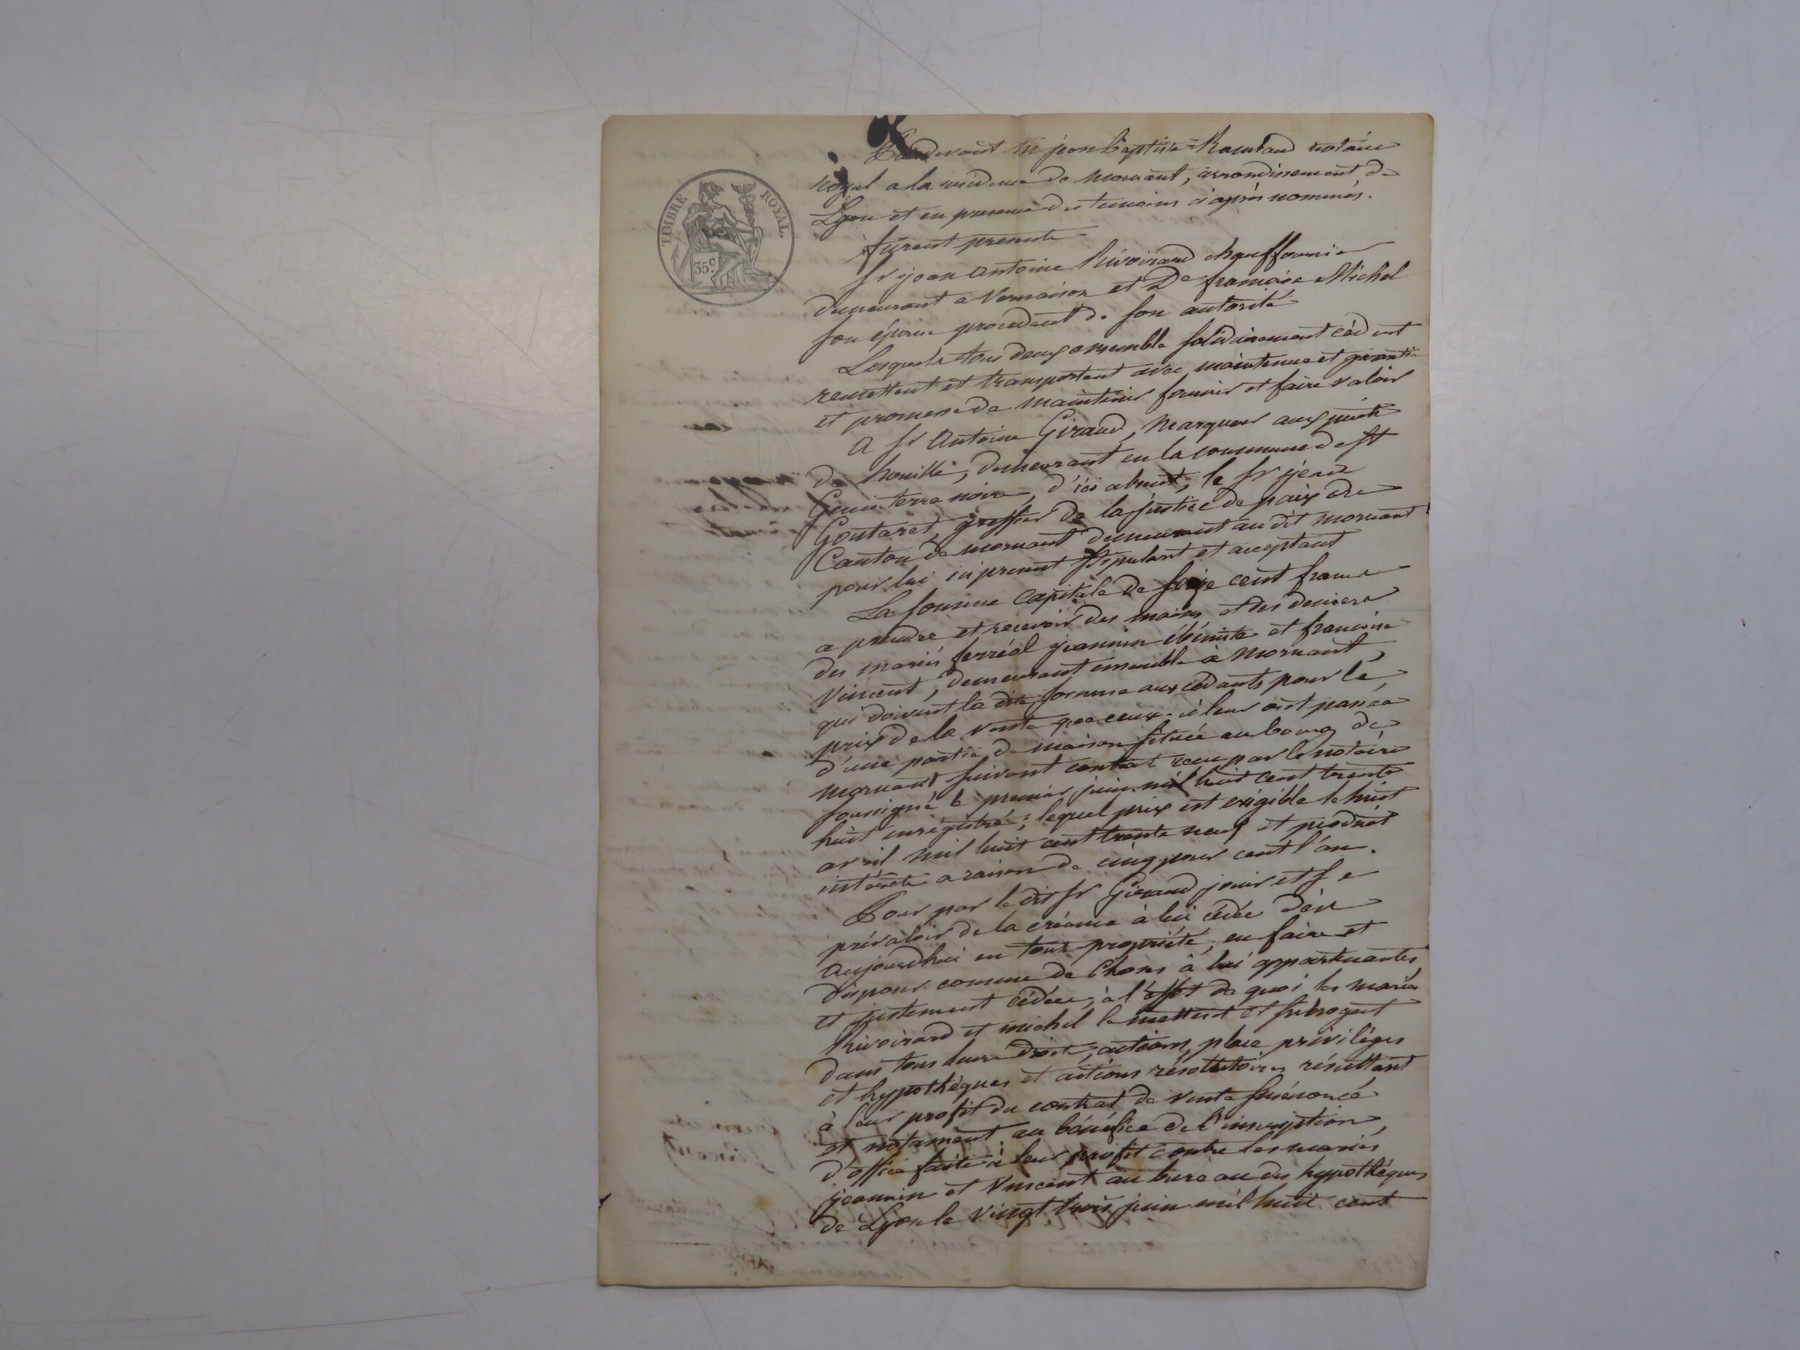 TIMBRE ROYAL.
35 c.
Pardevant Me jean Baptiste notaire
royal a la residence de Mornant, arrondissement de
Lyon et en presence des temoins ci après nommés.
furent presents
Sr jean Antoine Rivoirard chauffournier
demeurant a Vernaison et De francoise Michel
son épouse procedant de son autorité
Lesquels tous deux ensemble solidairement cédent
remettent et transportent avec maintenue et garantie
et promesse de maintenir fournir et faire valoir
A Sr Antoine Giraud, Marqueur aux puits
de houille, demeurant en la commune de St
Genis terre noire, d'ici absent, le Sr jean
Goutaret, greffier de la justice de paix du
Canton de mornant demeurant au dit mornant
pour lui ici present stipulant et acceptant
La somme capitale de seize cent francs
a prendre et recevoir des mains et des deniers
des mariés ferréol jeannin ébéniste et francoise
Vincent, demeurant ensemble à Mornant,
qui doivent la dite somme aux cédants pour le
prix de la vente que ceux-ci leur ont passée
d'une partie de maison située au bourg de
mornant suivant contrat recu par le notaire
soussigné le premier juin mil huit cent trente
huit enrégistré; lequel prix est exigible le huit
avril mil huit cent trente neuf et produit
intérêts a raison de cinq pour cent l'an.
Pour par le dit Sr Giraud jouir et se
prévaloir de la créance à lui cédée dès
aujourdhui en toute propriété, en faire et
disposer comme de chose à lui appartenantes
et justement cédée; à l'effet de quoi les mariés
Rivoirard et michel le mettent et subrogent
dans tous leurs droits, actions, place privilèges
et hypothèques et actions résolutoires résultant
à leur profit du contrat de vente susénoncé
et notament au bénéfice de l'inscription,
d'office faite à leur profit contre les mariés
jeannin et Vincent au bureau des hypothèques
de Lyon le vingt trois juin mil huit cent